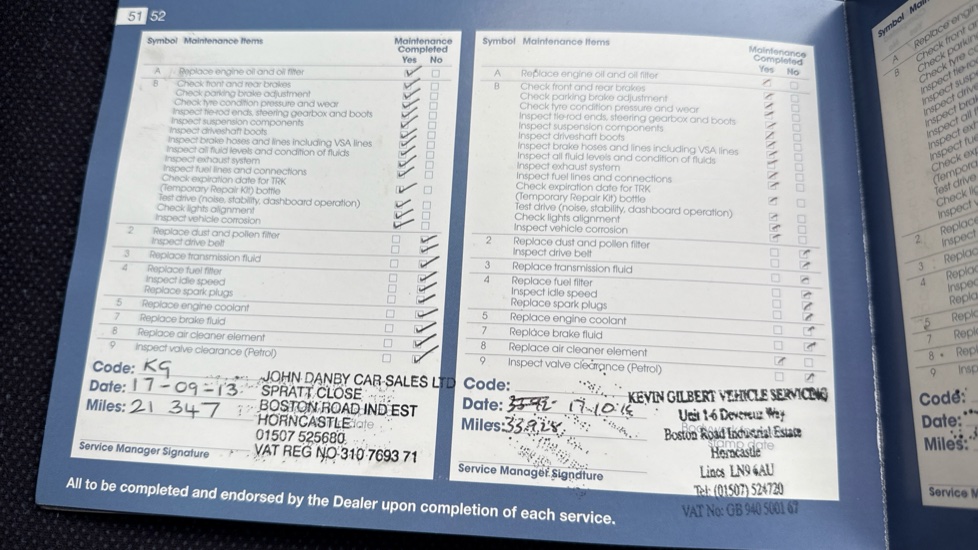 51 52
Symbol Maintenance Items Maintenance Completed Yes No
A Replace engine oil and oil filter
B Check front and rear brakes
Check parking brake adjustment
Check tyre condition pressure and wear
Inspect tie-rod ends, steering gearbox and boots
Inspect suspension components
Inspect driveshaft boots
Inspect brake hoses and lines including VSA lines
Inspect all fluid levels and condition of fluids
Inspect exhaust system
Inspect fuel lines and connections
Check expiration date for TRK
(Temporary Repair Kit) bottle
Test drive (noise, stability, dashboard operation)
Check lights alignment
Inspect vehicle corrosion
2 Replace dust and pollen filter
Inspect drive belt
3 Replace transmission fluid
4 Replace fuel filter
Inspect idle speed
Replace spark plugs
5 Replace engine coolant
7 Replace brake fluid
8 Replace air cleaner element
9 Inspect valve clearance (Petrol)
Code: KG
Date: 17-09-13
Miles: 21 347
JOHN DANBY CAR SALES LTD
SPRATT CLOSE
BOSTON ROAD IND EST
HORNCASTLE
01507 525680
VAT REG NO 310 7693 71
Service Manager Signature
Symbol Maintenance Items Maintenance Completed Yes No
A Replace engine oil and oil filter
B Check front and rear brakes
Check parking brake adjustment
Check tyre condition pressure and wear
Inspect tie-rod ends, steering gearbox and boots
Inspect suspension components
Inspect driveshaft boots
Inspect brake hoses and lines including VSA lines
Inspect all fluid levels and condition of fluids
Inspect exhaust system
Inspect fuel lines and connections
Check expiration date for TRK
(Temporary Repair Kit) bottle
Test drive (noise, stability, dashboard operation)
Check lights alignment
Inspect vehicle corrosion
2 Replace dust and pollen filter
Inspect drive belt
3 Replace transmission fluid
4 Replace fuel filter
Inspect idle speed
Replace spark plugs
5 Replace engine coolant
7 Replace brake fluid
8 Replace air cleaner element
9 Inspect valve clearance (Petrol)
Code:
Date: 17-10-14
Miles: 33928
KEVIN GILBERT VEHICLE SERVICING
Unit 1-6 Devereux Way
Boston Road Industrial Estate
Horncastle
Lincs LN9 6AU
Tel: (01507) 524720
VAT No: GB 940 5001 67
Service Manager Signature
All to be completed and endorsed by the Dealer upon completion of each service.
Code:
Date:
Miles: